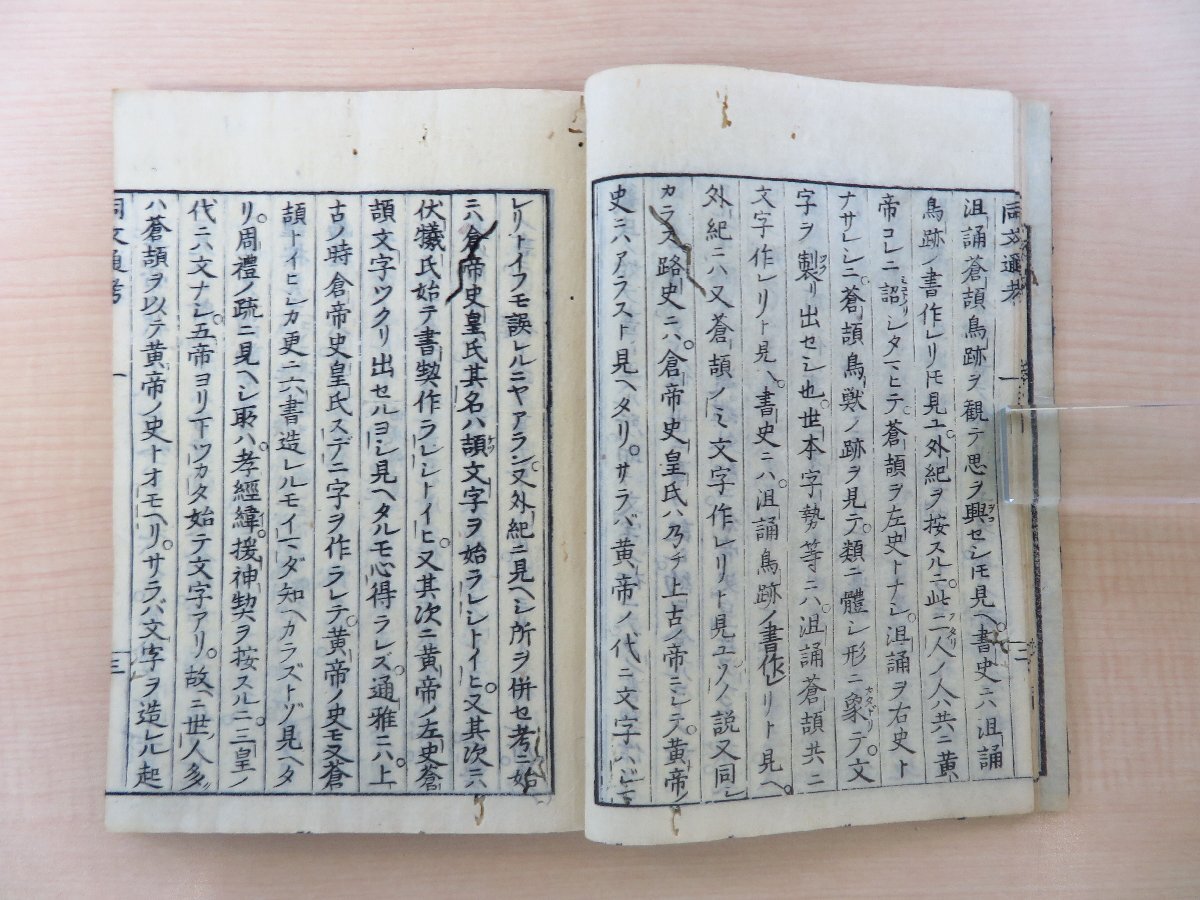 同文通考
沮誦蒼頡鳥跡ヲ観テ思ヲ興セシトモ見ヘ書史ニハ沮誦
鳥跡ノ書作レリトモ見ユ。外紀ヲ按スルニ。此二人ノ人ハ共ニ黄
帝コレニ詔シタマヒテ。蒼頡ヲ左史トナシ。沮誦ヲ右史ト
ナサレシニ。蒼頡鳥獣ノ跡ヲ見テ。類ニ體シ形ニ象テ。文
字ヲ製リ出セシ也。世本字勢等ニハ。沮誦蒼頡共ニ
文字作レリト見ヘ。書史ニハ。沮誦鳥跡ノ書作レリト見ヘ。
外紀ニハ又蒼頡ノミ文字作レリト見ユ。ソノ説又同シ
カラス。路史ニハ。倉帝史皇氏ハ乃チ上古ノ帝ニシテ。黄帝ノ
史ニハアラスト見ヘタリ。サラバ黄帝ノ代ニ文字ハシマ
レリトイフモ誤レルニヤアラン。又外紀ニ見ヘシ所ヲ併セ考ニ始
ニハ倉帝史皇氏其名ハ頡文字ヲ始ラレシトイヒ。又其次ニハ
伏犧氏始テ書契作ラレシトイヒ。又其次ニ黄帝ノ左史蒼
頡文字ツクリ出セルヨシ見ヘタルモ心得ラレス。通雅ニハ。上
古ノ時倉帝史皇氏スデニ字ヲ作ラレテ。黄帝ノ史モ又蒼
頡トイヒシカ更ニ六書造レルモイマダ知ヘカラズトゾ見ヘタ
リ。周禮ノ疏ニ見ヘシ耶ハ。孝經緯。援神契ヲ按スルニ。三皇ノ
代ニハ文ナシ。五帝ヨリ下ツカタ始テ文字アリ。故ニ世人多
ハ蒼頡ヲ以テ黄帝ノ史トオモヘリ。サラハ文字ヲ造レル起
同文通考 一 三